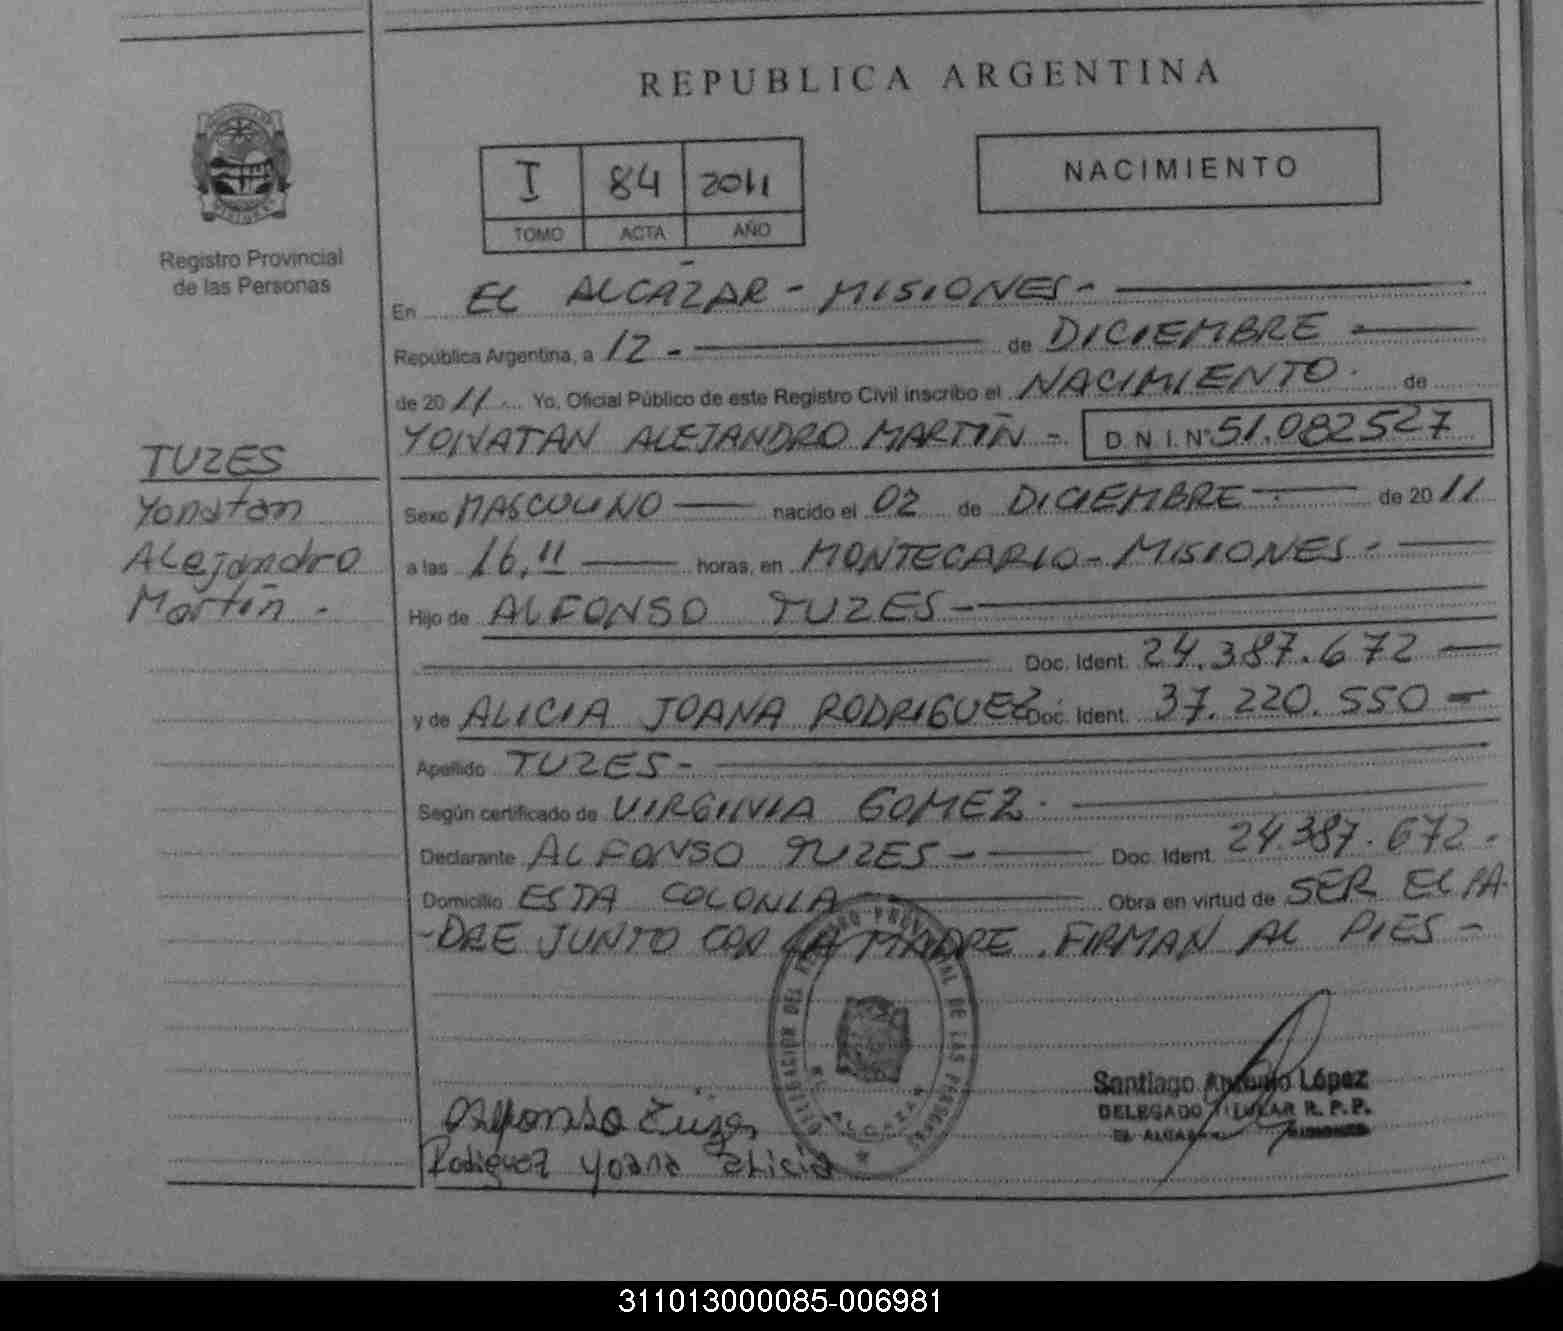 REPUBLICA ARGENTINA
I 84 2011
TOMO ACTA AÑO
NACIMIENTO
Registro Provincial
de las Personas
En EL ALCAZAR - MISIONES -
República Argentina, a 12 - de DICIEMBRE
de 20 11 Yo, Oficial Público de este Registro Civil inscribo el NACIMIENTO. de
YONATAN ALEJANDRO MARTIN - D.N.I. Nº 51.082527
TUZES
Yonatan
Alejandro
Martin -
Sexo MASCULINO nacido el 02 de DICIEMBRE de 20 11
a las 16,11 horas, en MONTECARLO - MISIONES -
Hijo de ALFONSO TUZES -
Doc. Ident. 24.387.672
y de ALICIA JOANA RODRIGUEZ Doc. Ident. 37.220.550 -
Apellido TUZES -
Según certificado de VIRGINIA GOMEZ.
Declarante ALFONSO TUZES - Doc. Ident. 24.387.672 -
Domicilio ESTA COLONIA Obra en virtud de SER EL PA-
-DRE JUNTO CON LA MADRE. FIRMAN AL PIES -
DELEGACION DEL REGISTRO PROVINCIAL DE LAS PERSONAS
EL ALCAZAR
Santiago Antonio López
DELEGADO TITULAR R. P. P.
EL ALCAZAR MISIONES
Alfonso
Rodriguez Yoana Alicia
311013000085-006981